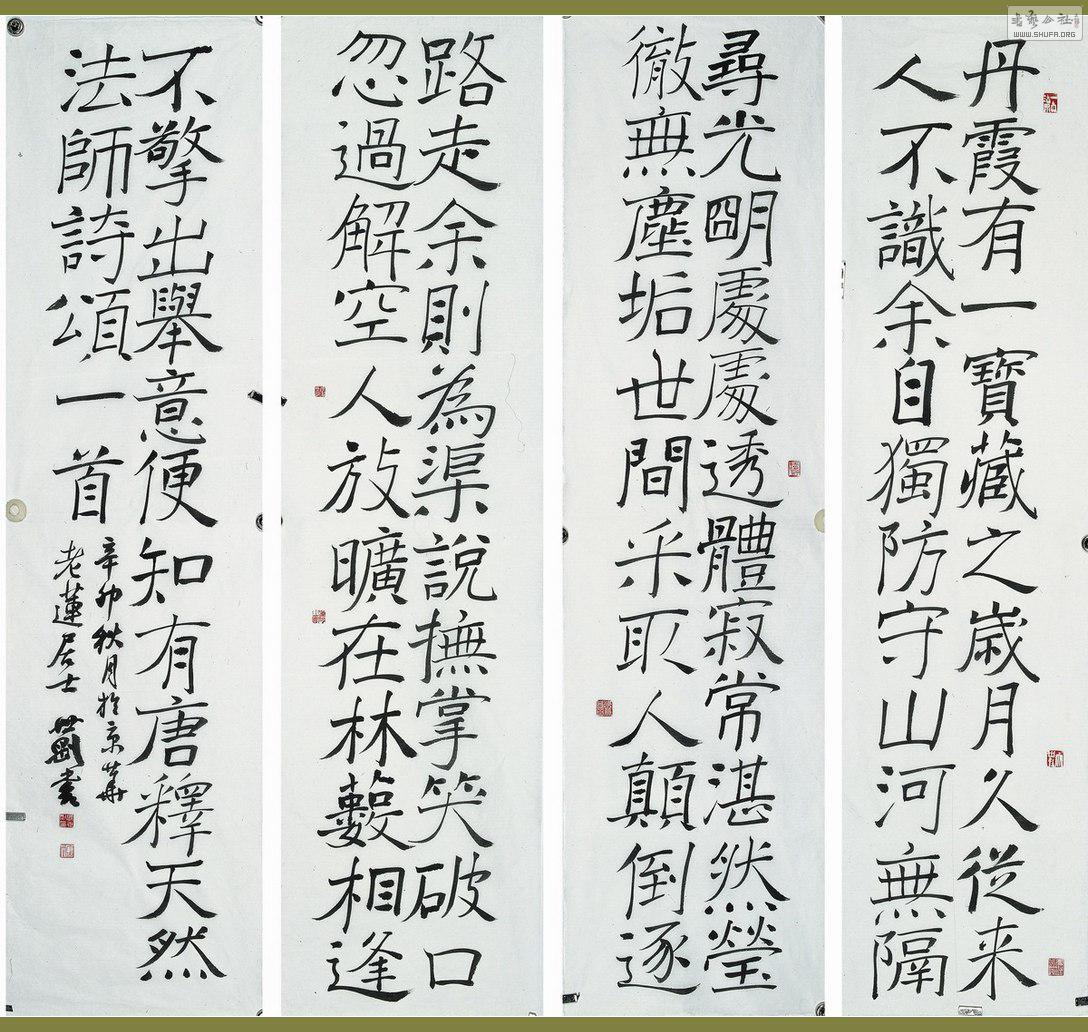 丹霞有一寶藏之歲月久從来
人不識余自獨防守山河無隔
尋光朙處處透體寂常湛然瑩
徹無塵垢世間采取人顛倒逐
路走余則為渠說撫掌笑破口
忽過解空人放曠在林藪相逢
不擎出舉意便知有唐釋天然
法師詩頌一首
辛卯秋月於京華
老蓮居士 書
書藝公社
WWW.SHUFA.ORG